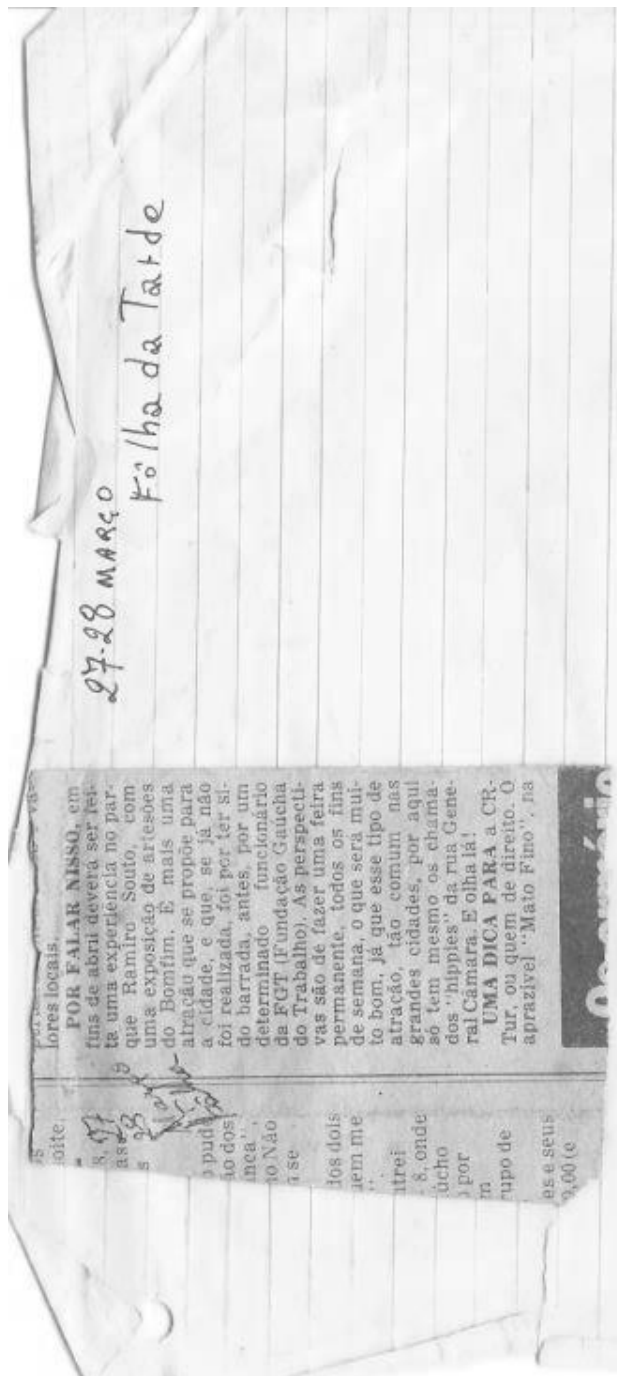 27-28 MARÇO
Fôlha da Tarde
lores locais.
POR FALAR NISSO, em
fins de abril deverá ser fei-
ta uma experiência no par-
que Ramiro Souto, com
uma exposição de artesões
do Bomfim. É mais uma
atração que se propõe para
a cidade, e que, se já não
foi realizada, foi por ter si-
do barrada, antes, por um
determinado funcionário
da FGT (Fundação Gaucha
do Trabalho). As perspecti-
vas são de fazer uma feira
permanente, todos os fins
de semana, o que será mui-
to bom, já que esse tipo de
atração, tão comum nas
grandes cidades, por aqui
só tem mesmo os chama-
dos "hippies" da rua Gene-
ral Câmara. E olha lá!
UMA DICA PARA a CR-
Tur, ou quem de direito. O
aprazível "Mato Fino", na
oite.
8,
as
s
pud
ão dos
anca",
no Não
se
dos dois
uem me
ntrei
8, onde
úcho
por
m
rupo de
es e seus
0,00 (e
27
28